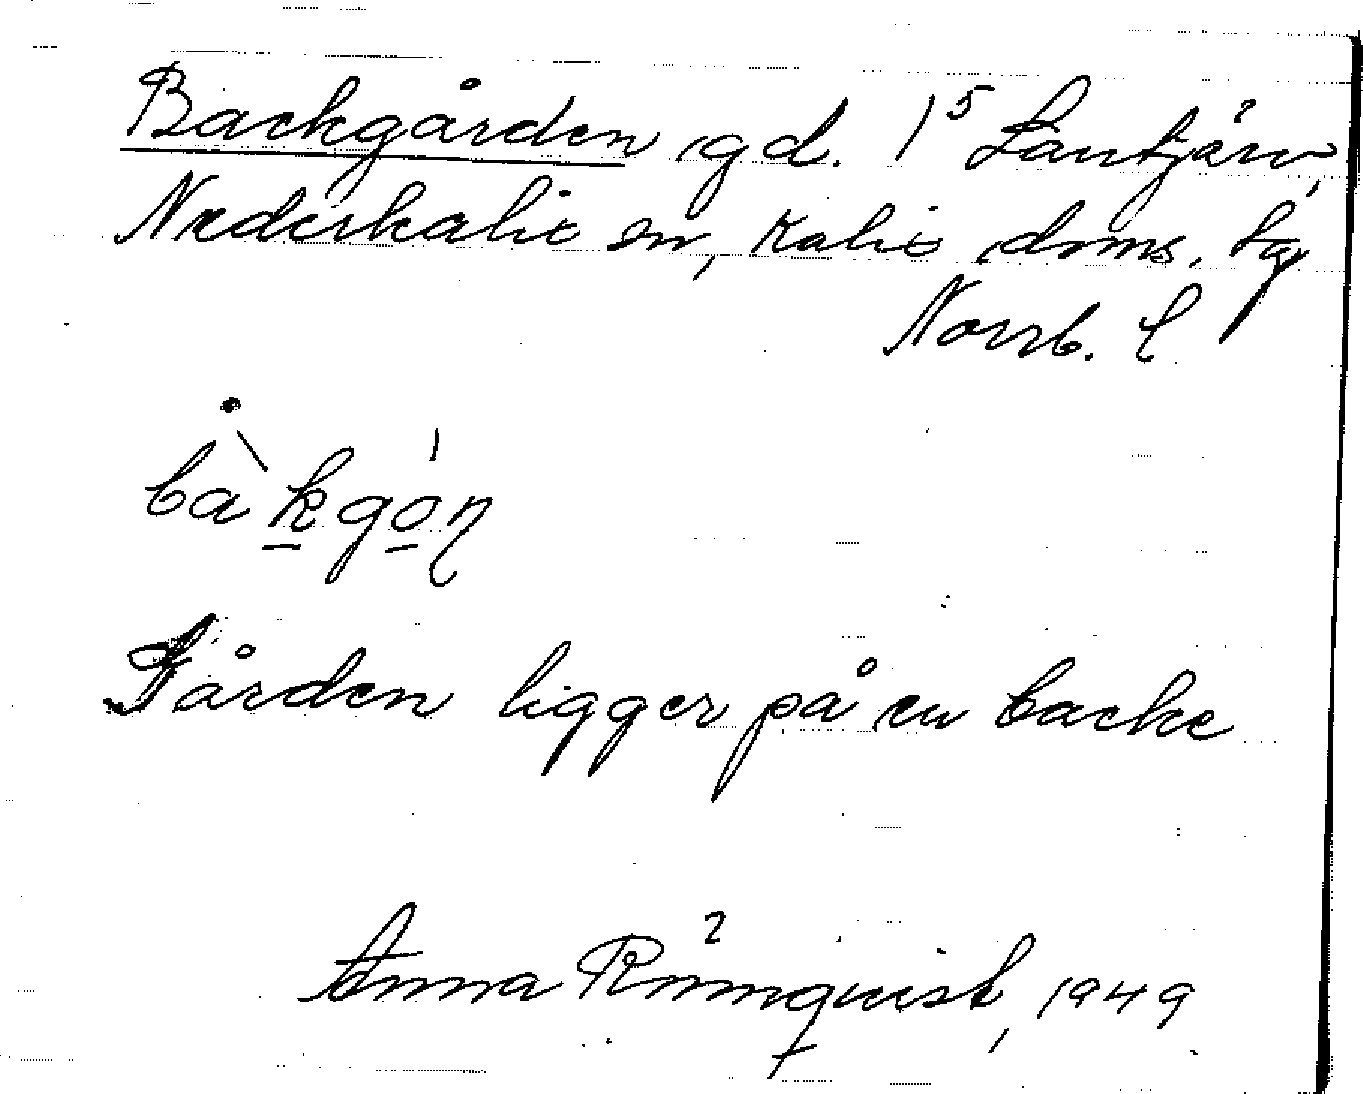 Backgården, gd. 1⁵ Lantjärv,
Nederkalix sn, Kalix doms. tg
Norrb. l
bàkgón
Gården ligger på en backe
Anna Römquist, 1949